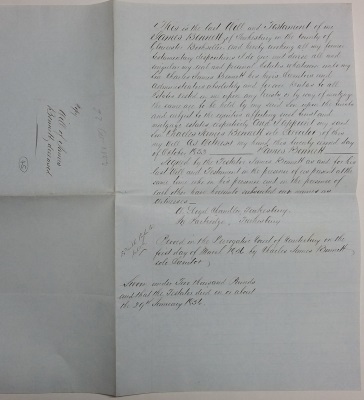 This is the last Will and Testament of me
James Bennett of Tewkesbury in the County of
Gloucester Bookseller and hereby revoking all my former
testamentary dispositions I do give and devise all and
singular my real and personal Estates whatsoever unto my
Son Charles James Bennett his heirs Executors and
Administrators absolutely and for ever Estates to all
Estates vested in me upon any trusts or by way of mortgage
the same are to be held by my said Son upon the trusts
and subject to the equities affecting such trust and
mortgaged estates respectively And I appoint my said
Son Charles James Bennett sole Executor of this
my Will As Witness my hand this twenty second day
of October 1853 James Bennett
Signed by the Testator James Bennett as and for his
last Will and Testament in the presence of us present at the
same time who in his presence and in the presence of
each other have hereunto subscribed our names as
Witnesses
Tewkesbury
Tewkesbury
Proved in the Prerogative Court of Canterbury on the
first day of March 1856 by Charles James Bennett
sole Executor
Sworn under Five thousand Pounds
and that the Testator died on or about
the 29th January 1856
Copy
Will of James
Bennett deceased